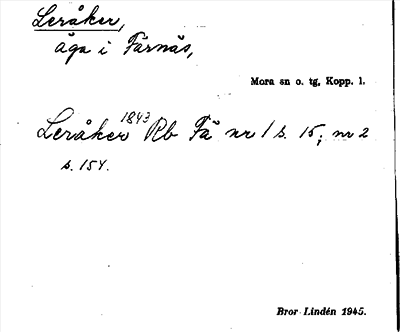 Leråker,
äga i Färnäs,
Mora sn o. tg, Kopp. l.
Leråker 1843 Rb Fä nr 1 s. 15; nr 2
s. 154.
Bror Lindén 1945.